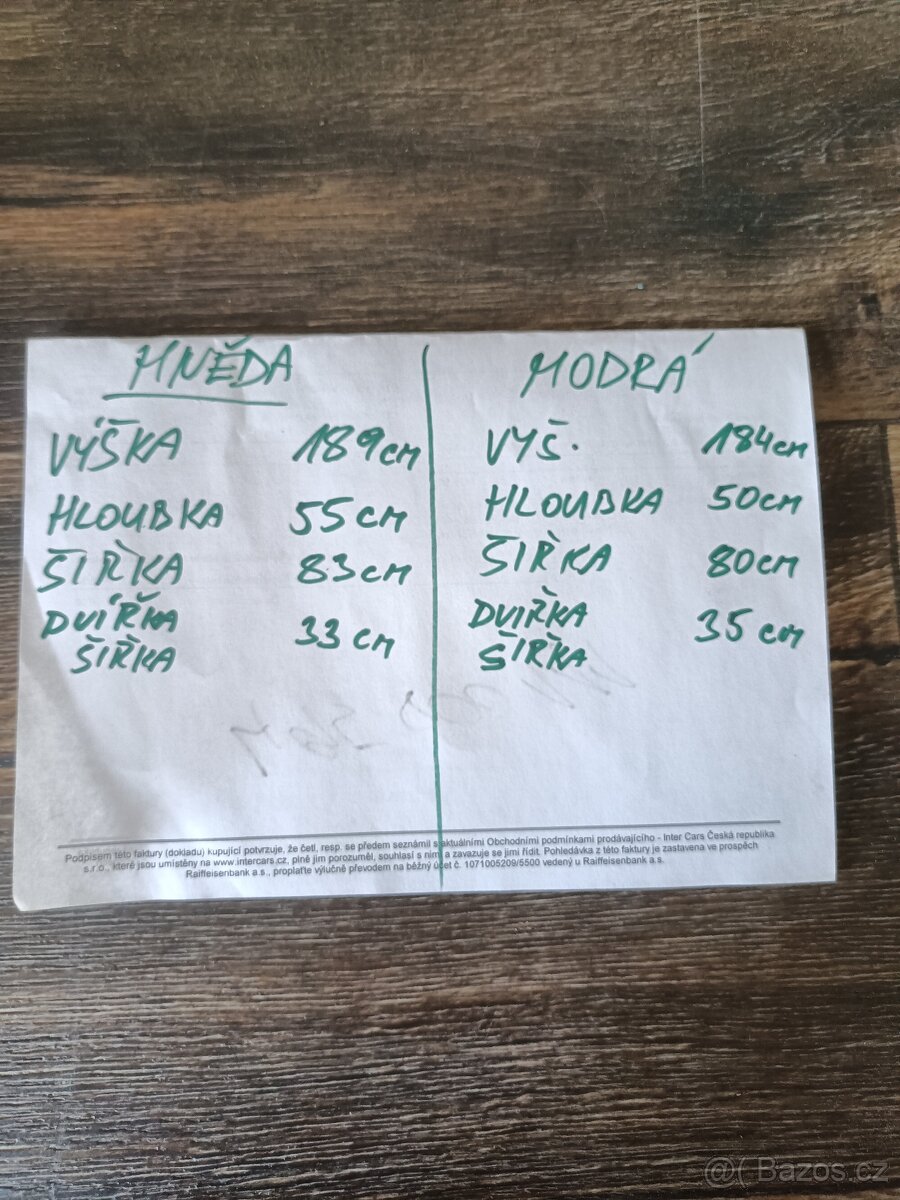 HNĚDA
VÝŠKA 189cm
HLOUBKA 55cm
ŠIŘKA 83cm
DVÍŘKA
ŠIŘKA 33cm
MODRÁ
VYŠ. 184cm
HLOUBKA 50cm
ŠIŘKA 80cm
DVIŘKA
ŠIŘKA 35cm
Podpisem této faktury (dokladu) kupující potvrzuje, že četl, resp. se předem seznámil s aktuálními Obchodními podmínkami prodávajícího - Inter Cars Česká republika
s.r.o., které jsou umístěny na www.intercars.cz, plně jim porozuměl, souhlasí s nimi a zavazuje se jimi řídit. Pohledávka z této faktury je zastavena ve prospěch
Raiffeisenbank a.s., proplaťte výlučně převodem na běžný účet č. 1071005209/5500 vedený u Raiffeisenbank a.s.
@( Bazos.cz